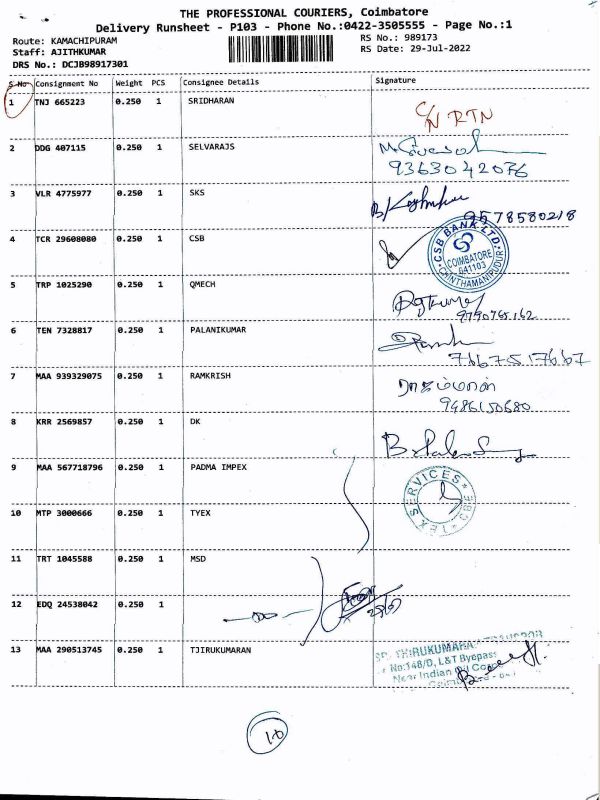 THE PROFESSIONAL COURIERS, Coimbatore
Delivery Runsheet - P103 - Phone No.:0422-3505555 - Page No.:1
Route: KAMACHIPURAM
Staff: AJITHKUMAR
DRS No.: DCJB98917301
RS No.: 989173
RS Date: 29-Jul-2022
S No Consignment No Weight PCS Consignee Details Signature
1 TNJ 665223 0.250 1 SRIDHARAN C/N RTN
2 DDG 407115 0.250 1 SELVARAJS
9363042076
3 VLR 4775977 0.250 1 SKS
9578580218
4 TCR 29608080 0.250 1 CSB
CSB BANK LTD.
COIMBATORE
641103
CHINTHAMANIPUDUR
5 TRP 1025290 0.250 1 QMECH
9790765162
6 TEN 7328817 0.250 1 PALANIKUMAR
7667517667
7 MAA 939329075 0.250 1 RAMKRISH ராஜம்மாள்
9486150680
8 KRR 2569857 0.250 1 DK
9 MAA 567718796 0.250 1 PADMA IMPEX
SERVICES
10 MTP 3000666 0.250 1 TYEX
11 TRT 1045588 0.250 1 MSD
12 EDQ 24538042 0.250 1
13 MAA 290513745 0.250 1 TJIRUKUMARAN
THIRUKUMARA
No:148/D, L&T Byepass
Near Indian Oil
10